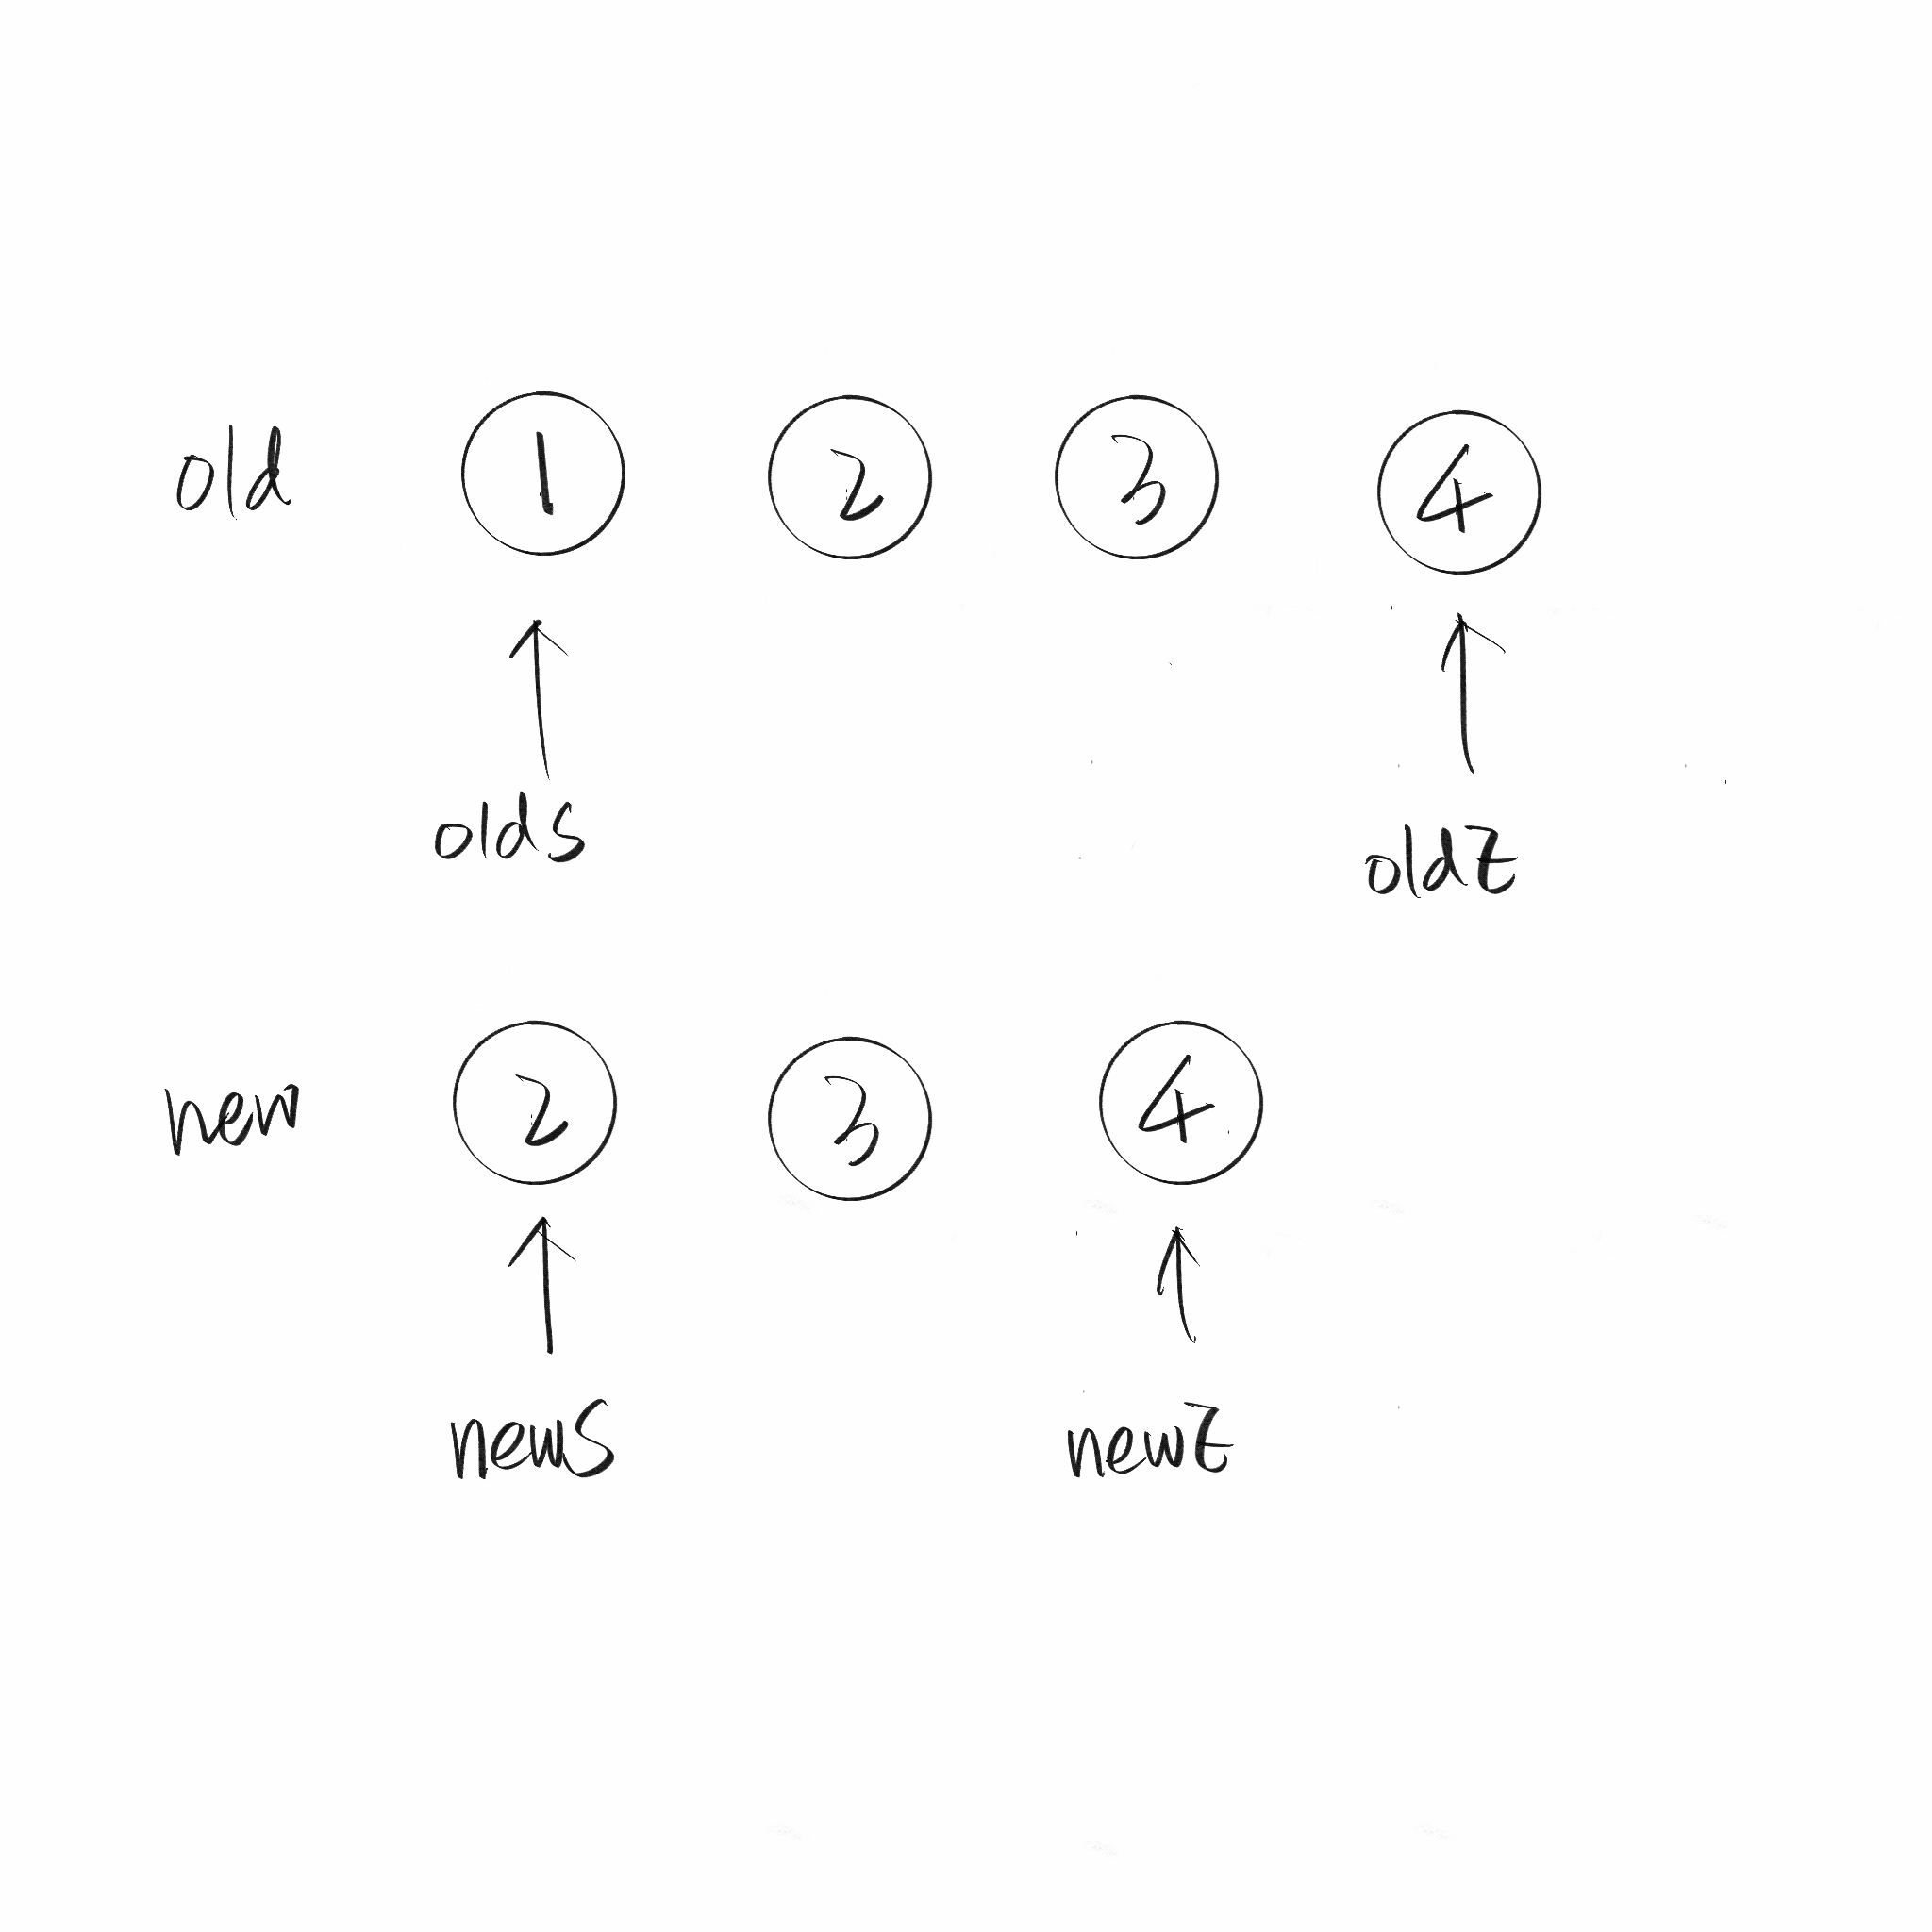 old 1 2 3 4
oldS oldE
new 2 3 4
newS newE